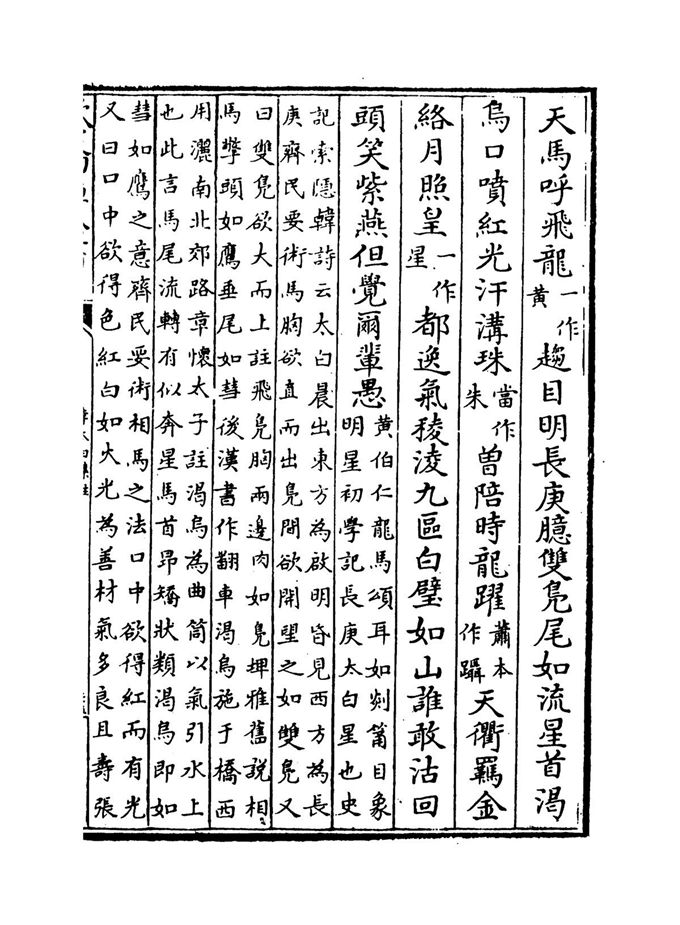 天馬呼飛龍一作黃趨目明長庚臆雙鳬尾如流星首渴
烏口噴紅光汗溝珠當作朱曽陪時龍躍蕭本作躡天衢羈金
絡月照皇一作星都逸氣稜淩九區白璧如山誰敢沽回
頭笑紫燕但覺爾輩愚黃伯仁龍馬頌耳如剡筩目象
明星初學記長庚太白星也史
記索隱韓詩云太白晨出東方為啟明昏見西方為長
庚齊民要術馬胸欲直而出鳬間欲開望之如雙鳬又
曰雙鳬欲大而上註飛鳬胸兩邊肉如鳬埤雅舊說相
馬擎頭如鷹垂尾如彗後漢書作翻車渴烏施于橋西
用灑南北郊路章懷太子註渴烏為曲筒以氣引水上
也此言馬尾流轉有似奔星馬首昂矯狀類渴烏即如
彗如鷹之意齊民要術相馬之法口中欲得紅而有光
又曰口中欲得色紅白如火光為善材氣多良且壽張